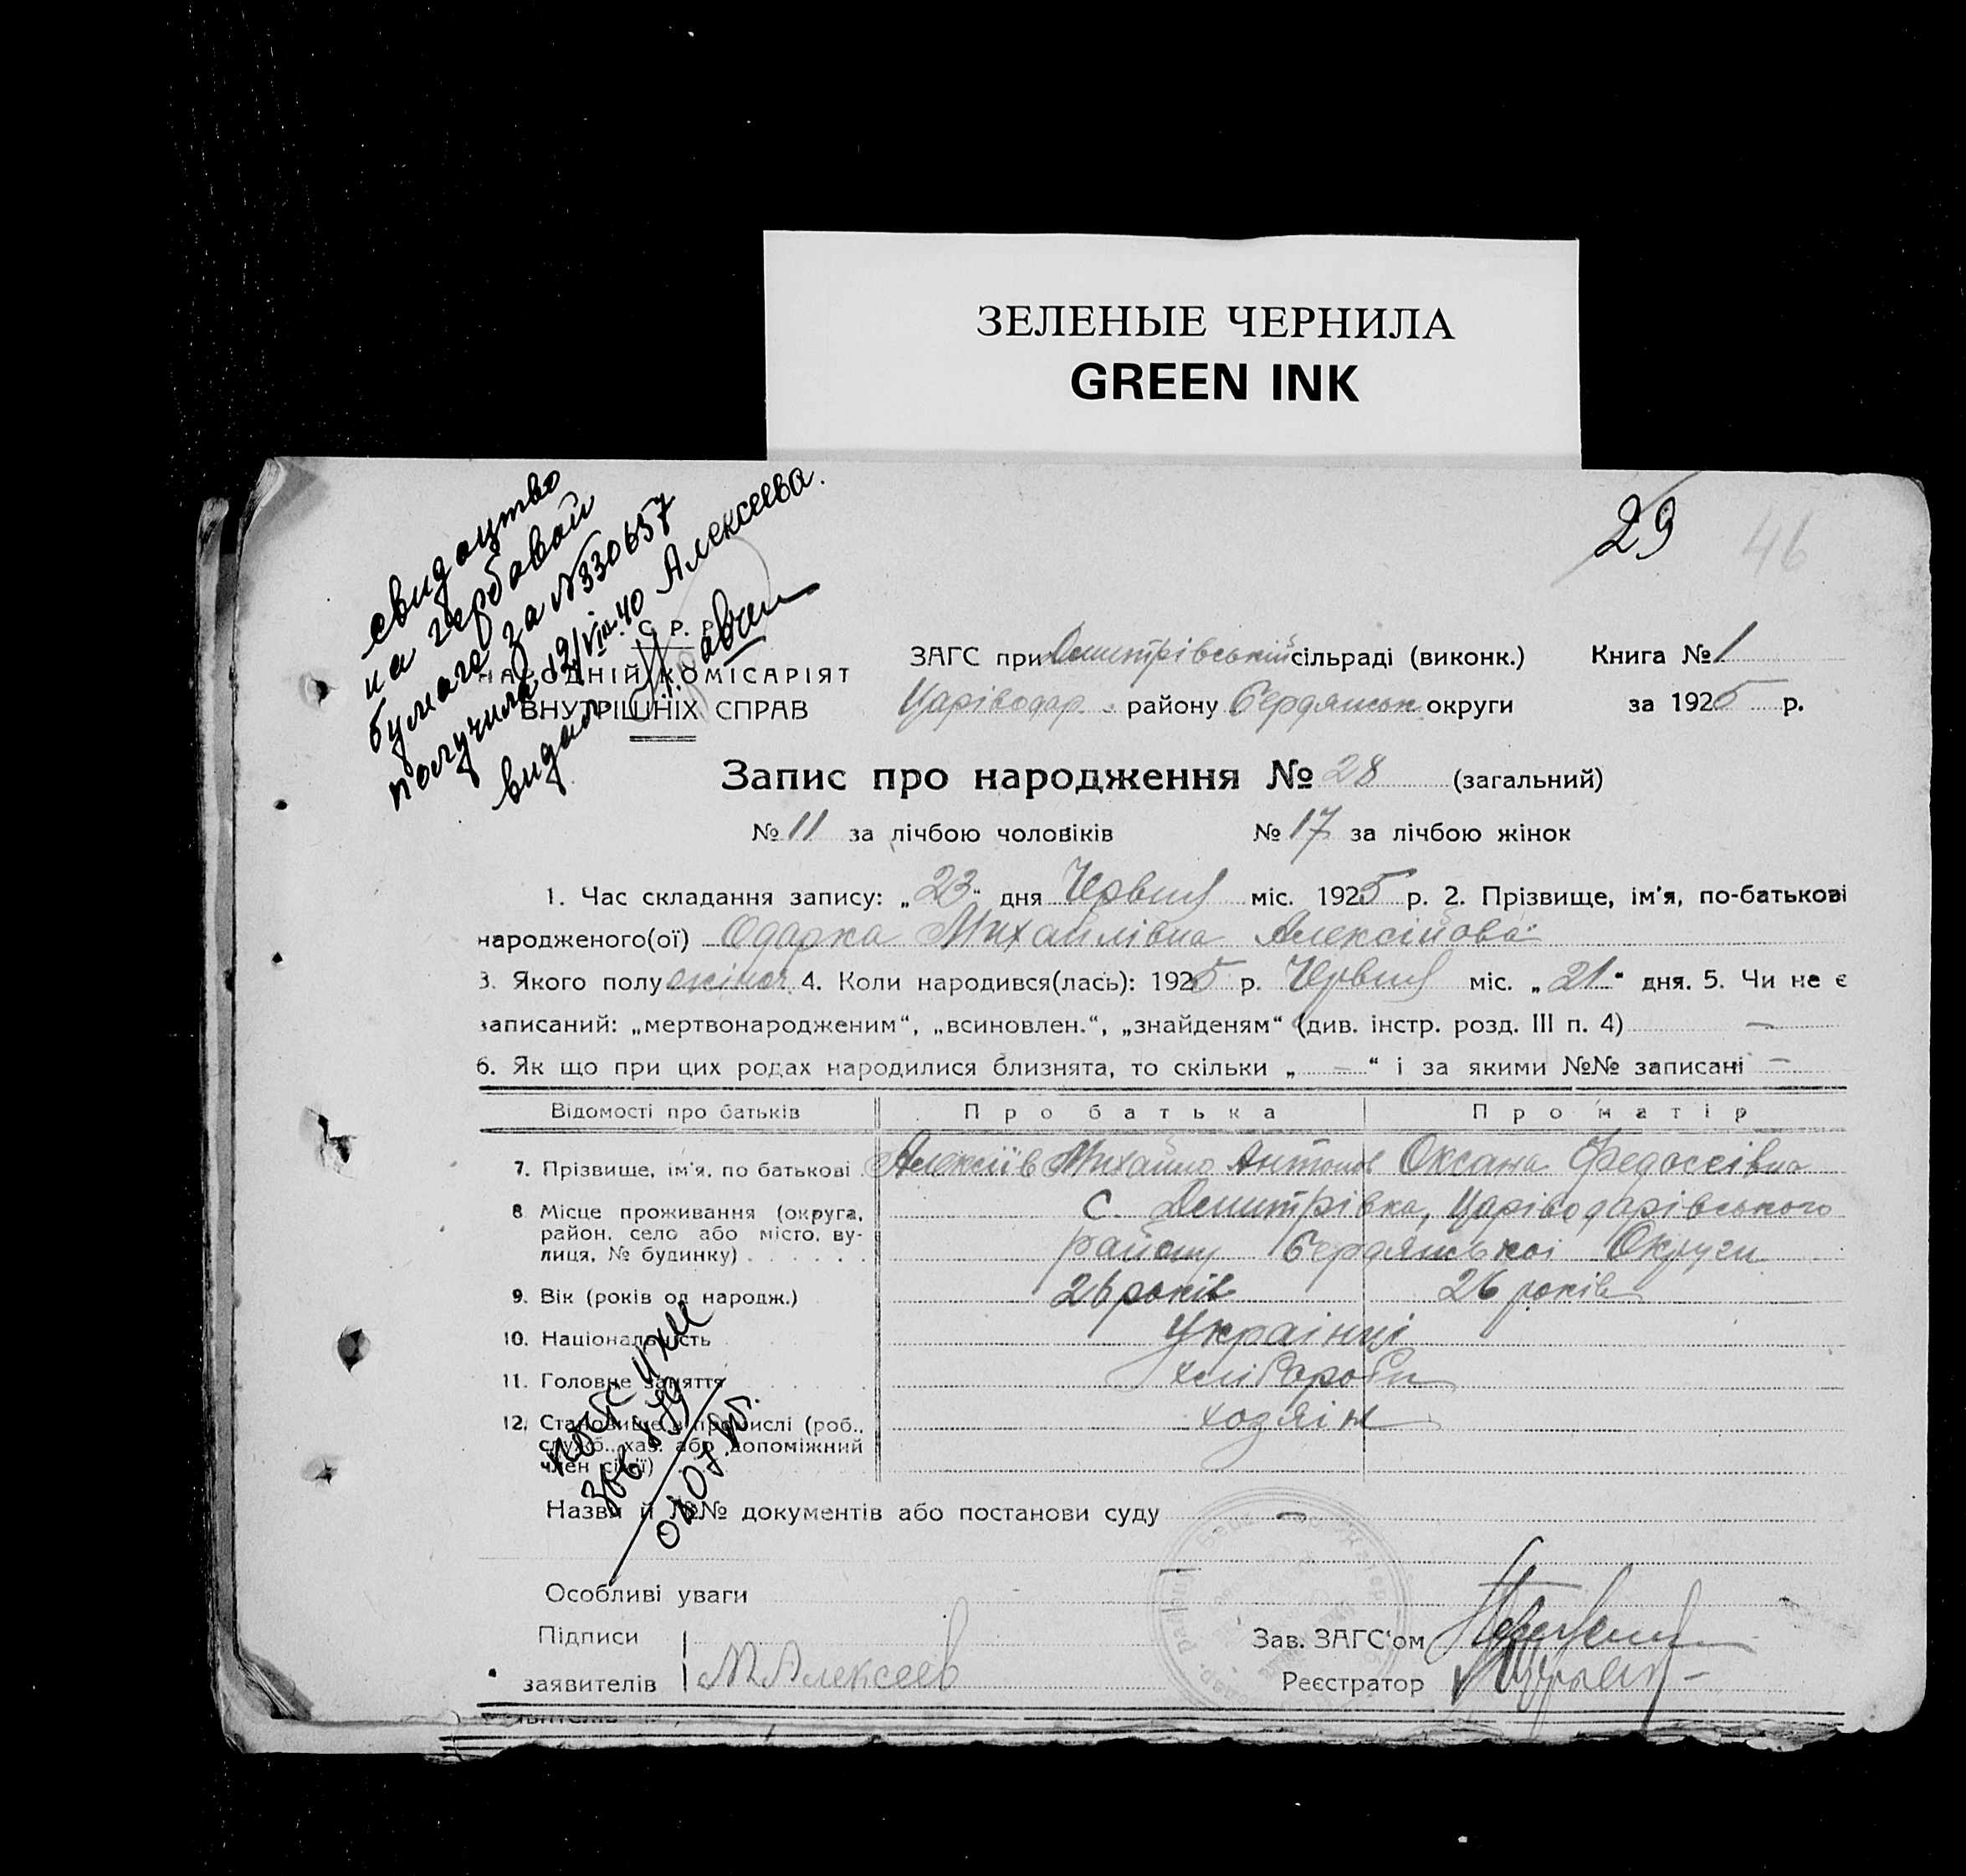 ЗЕЛЕНЫЕ ЧЕРНИЛА
GREEN INK
29
46
свидоцтво
на гербовой
бумаге за №330657
получила 12/VIII.40 Алексеева.
видал
С. Р. Р.
НАРОДНІЙ КОМІСАРІЯТ
ВНУТРІШНІХ СПРАВ
ЗАГС при Дмитрівській сільраді (виконк.) Книга № 1
Царіводар. району Бердянськ округи за 1925 р.
Запис про народження № 28 (загальний)
№ 11 за лічбою чоловіків № 17 за лічбою жінок
1. Час складання запису: „23“ дня Червня міс. 1925 р. 2. Прізвище, ім’я, по-батькові
народженого(ої) Одарка Михайлівна Алексійова
3. Якого полу жіноч. 4. Коли народився(лась): 1925 р. Червня міс. „21“ дня. 5. Чи не є
записаний: „мертвонародженим“, „всиновлен.“, „знайденям“ (див. інстр. розд. III п. 4) —
6. Як що при цих родах народилися близнята, то скільки „ — “ і за якими №№ записані —
Відомості про батьків Про батька Про матір
7. Прізвище, ім’я, по батькові Алексіїв Михайло Антонов Оксана Федосеівна
8 Місце проживання (округа, с. Дмитрівка, Царіводарівського
район, село або місто, ву-
лиця, № будинку) . . . . . . району Бердянської Округи
9. Вік (років од народж.) 26 років 26 років
10. Національність Українці
11. Головне заняття хлібороби
12. Становище в промислі (роб., хозяїн
служб., хаз. або допоміжний
член сім’ї)
Назви й №№ документів або постанови суду —
Особливі уваги
Підписи
заявителів М Алексеев
Зав. ЗАГС‘ом
Реєстратор